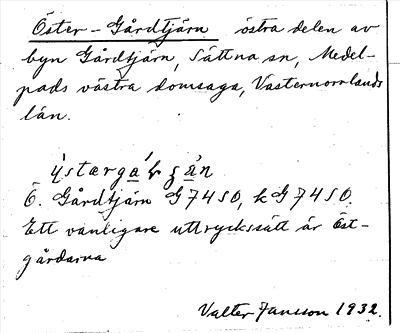 Öster-Gårdtjärn östra delen av
byn Gårdtjärn, Sättna sn, Medel-
pads västra domsaga, Västernorrlands
län.
Ö. Gårdtjärn G7450, kG7450.
Ett vanligare uttryckssätt är Öst-
gårdarna
Valter Jansson 1932.